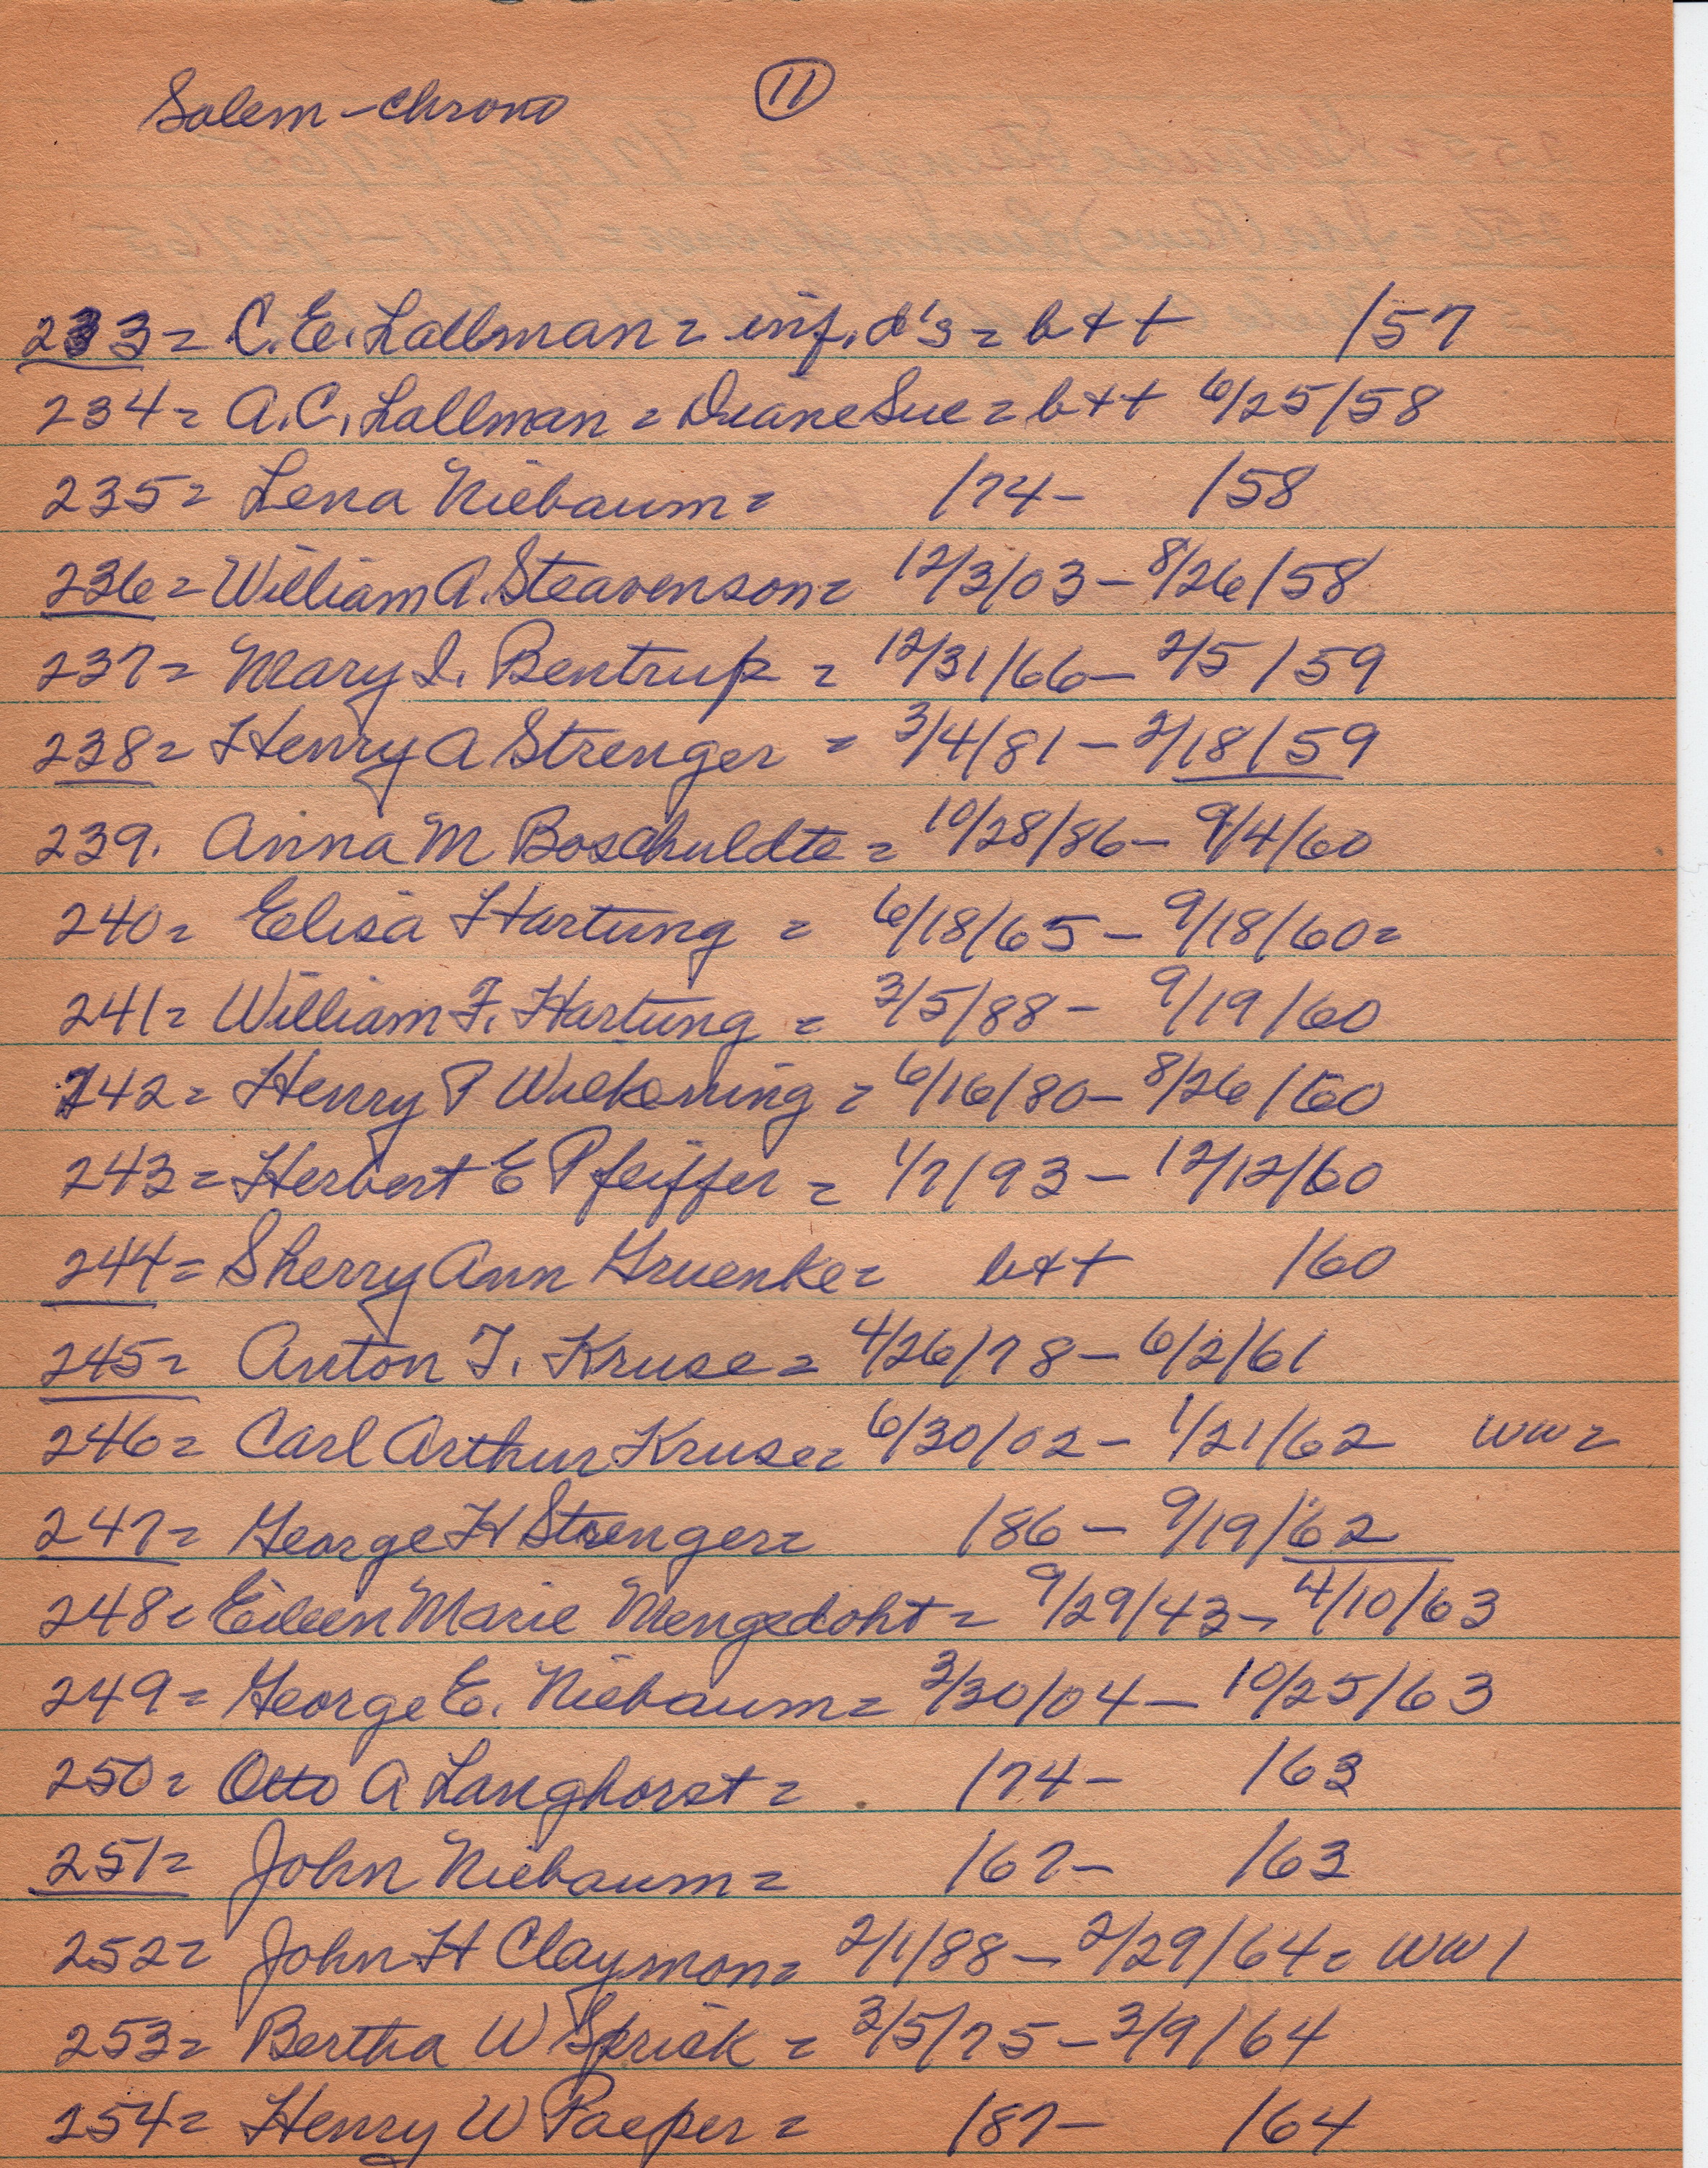 Salem - Chrono 11
233 = C.E. Lallman = inf. d's = b + t /57
234 = A.C. Lallman = Duane Sue = b + t 6/25/58
235 = Lena Niebaum = /74 - /58
236 = William A. Steavenson = 12/3/03 - 8/26/58
237 = Mary I. Bentrup = 12/31/66 - 2/5/59
238 = Henry A Strenger = 3/4/81 - 2/18/59
239. Anna M Boschuldte = 10/28/86 - 9/4/60
240 = Elisa Hartung = 6/18/65 - 9/18/60 =
241 = William F. Hartung = 3/5/88 - 9/19/60
242 = Henry P Wiekening = 6/16/80 - 8/26/60
243 = Herbert E Pfeiffer = 1/7/93 - 12/12/60
244 = Sherry Ann Gruenke = b + t /60
245 = Anton F. Kruse = 4/26/78 - 6/2/61
246 = Carl Arthur Kruse = 6/30/02 - 1/21/62 WW2
247 = George H Strenger = /86 - 9/19/62
248 = Eileen Marie Mengedoht = 9/29/43 - 4/10/63
249 = George E. Niebaum = 3/30/04 - 10/25/63
250 = Otto A Langhorst = /74 - /63
251 = John Niebaum = /67 - /63
252 = John H Claymon = 2/1/88 - 2/29/64 = WW1
253 = Bertha W Sprick = 3/5/75 - 3/9/64
254 = Henry W Paeper = /87 - /64